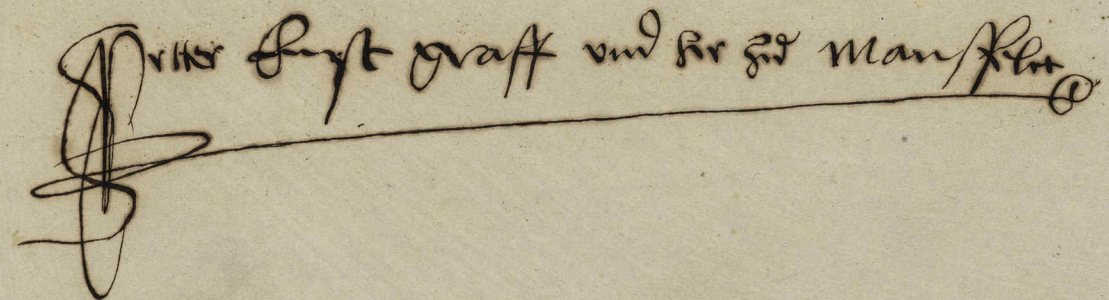 Petter Ernst graff und her zu Mansfelt